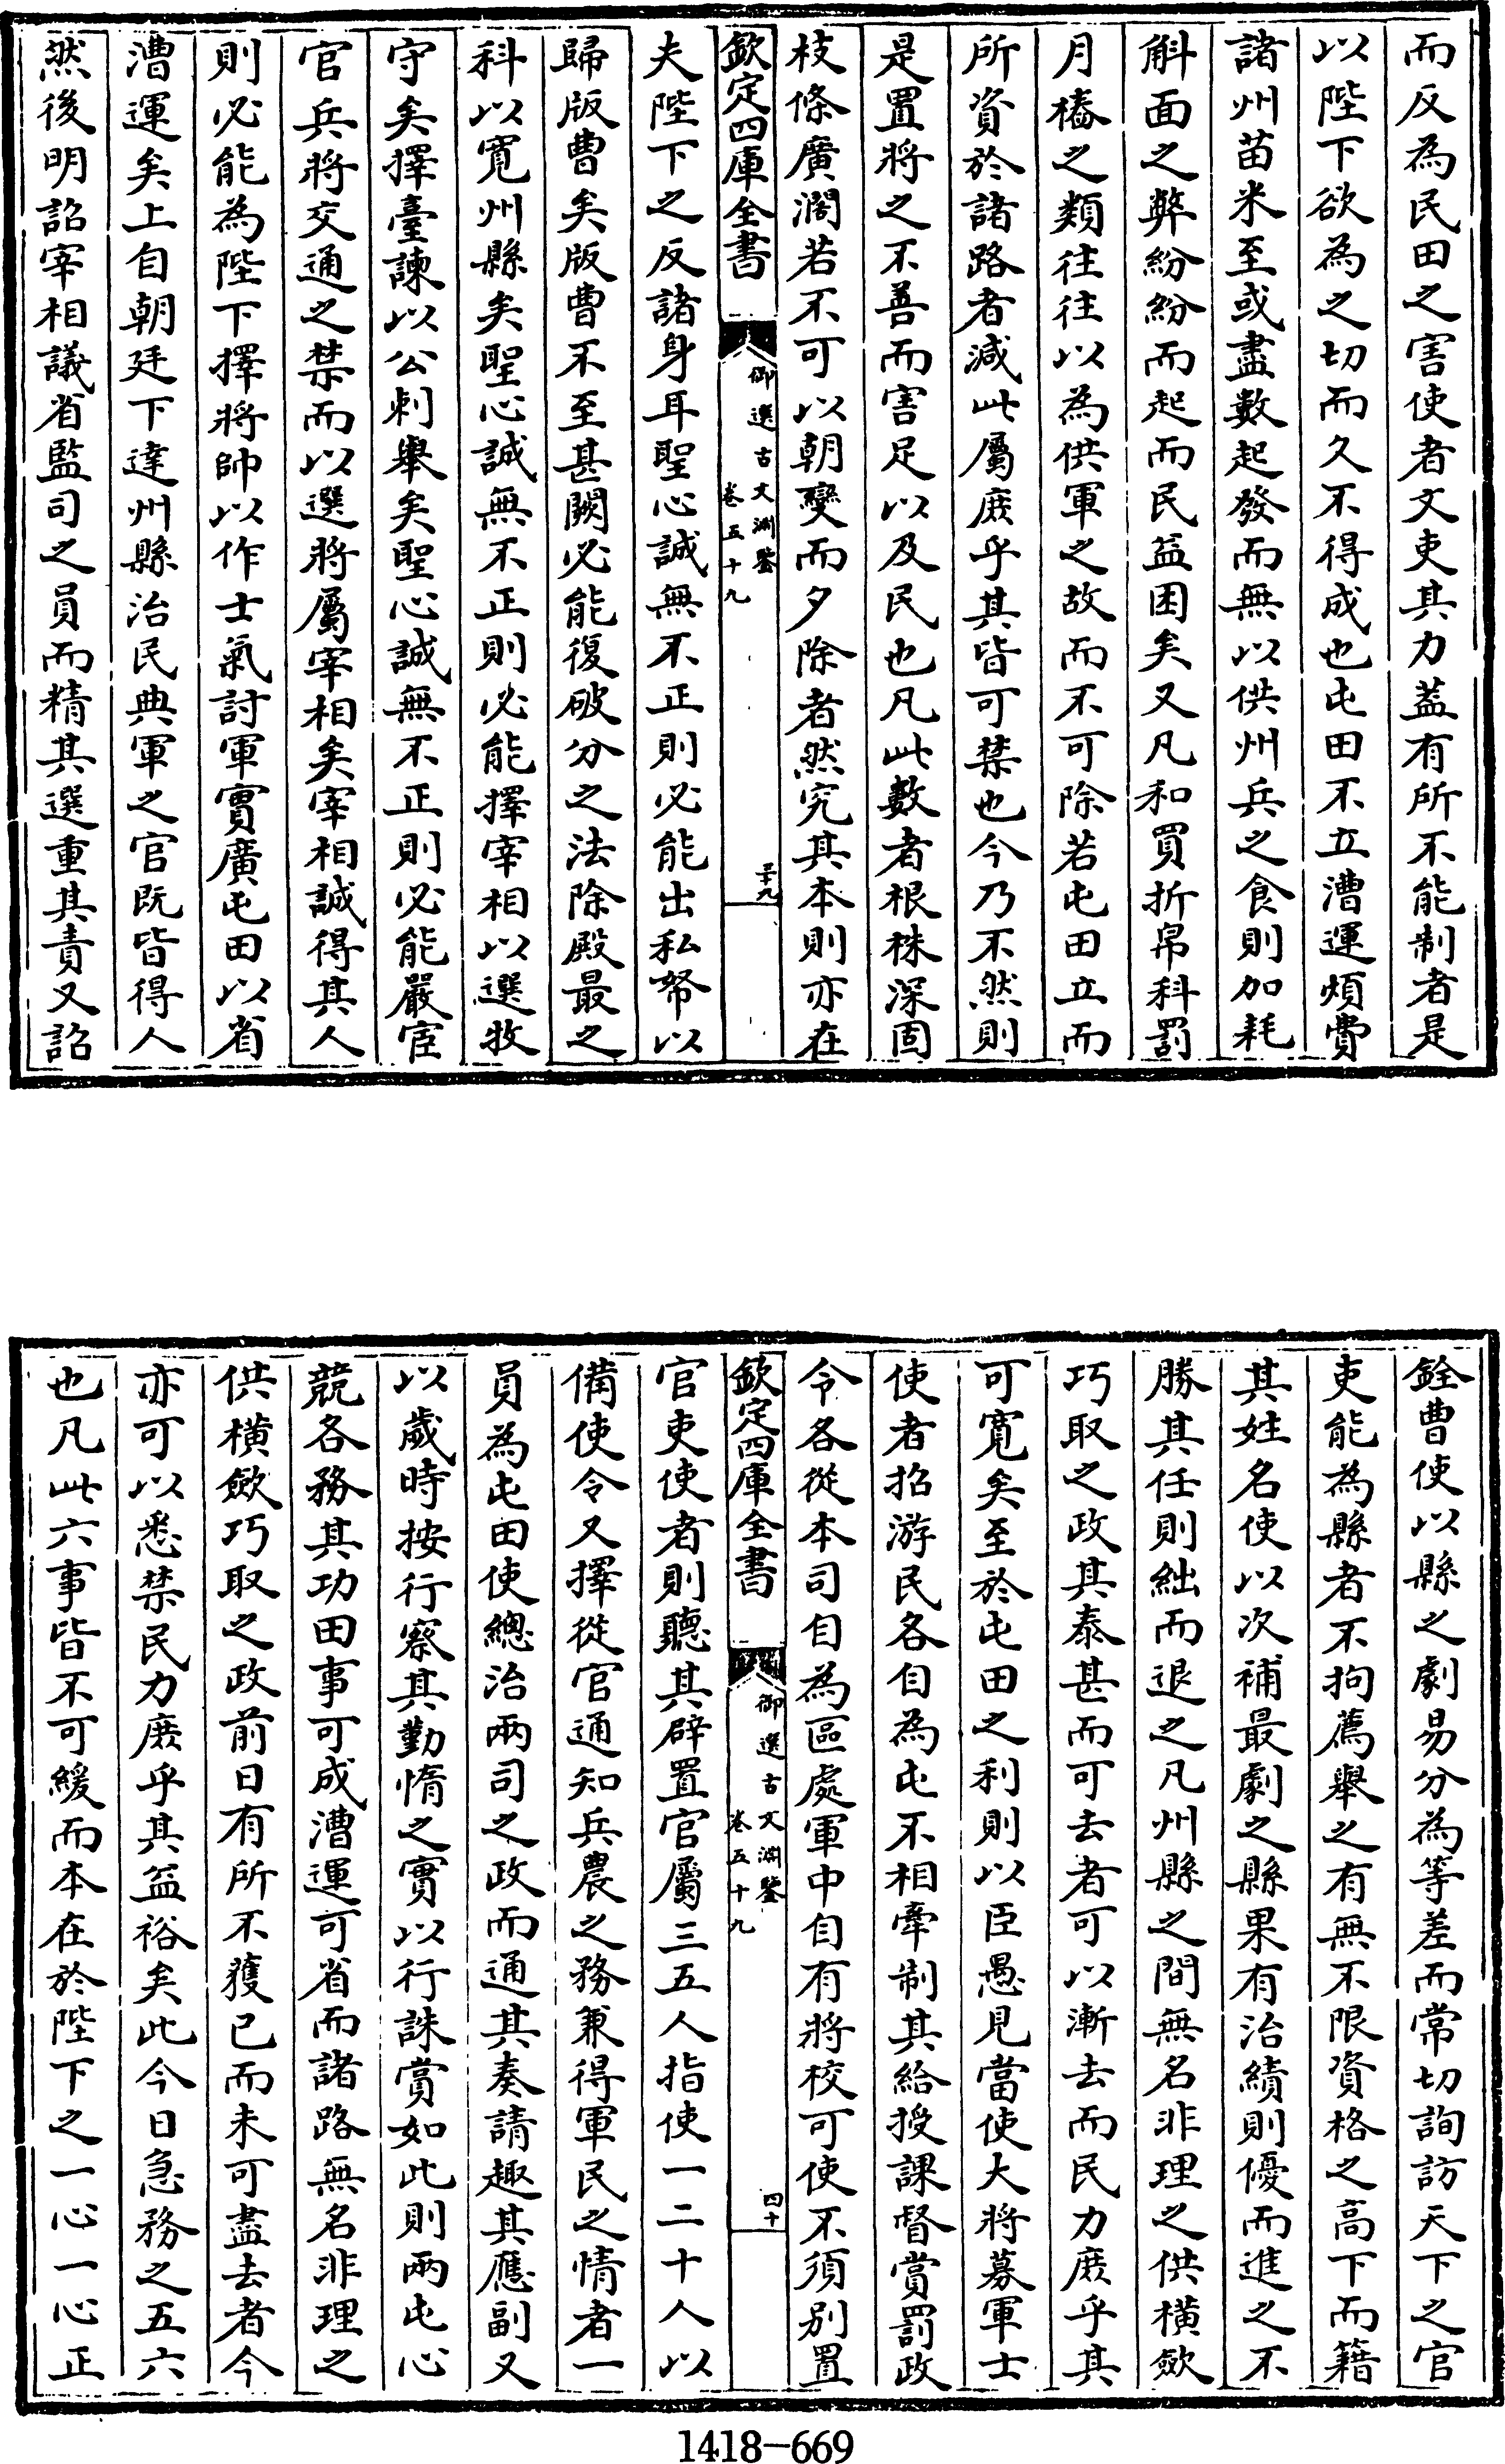 而反為民田之害使者文吏其力蓋有所不能制者是
以陛下欲為之切而久不得成也屯田不立漕運煩費
諸州苗米至或盡數起發而無以供州兵之食則加耗
斛面之弊紛紛而起而民益困矣又凡和買折帛科罰
月樁之類往往以為供軍之故而不可除若屯田立而
所資於諸路者減此屬庶乎其皆可禁也今乃不然則
是置將之不善而害足以及民也凡此數者根株深固
枝條廣濶若不可以朝變而夕除者然究其本則亦在
欽定四庫全書
御選古文淵鑒
卷五十九
三十九
夫陛下之反諸身耳聖心誠無不正則必能出私帑以
歸版曹矣版曹不至甚闕必能復破分之法除殿最之
科以寬州縣矣聖心誠無不正則必能擇宰相以選牧
守矣擇臺諫以公刺舉矣聖心誠無不正則必能嚴宦
官兵將交通之禁而以選將屬宰相矣宰相誠得其人
則必能為陛下擇將帥以作士氣討軍實廣屯田以省
漕運矣上自朝廷下達州縣治民典軍之官既皆得人
然後明詔宰相議省監司之員而精其選重其責又詔
銓曹使以縣之劇易分為等差而常切詢訪天下之官
吏能為縣者不拘薦舉之有無不限資格之高下而籍
其姓名使以次補最劇之縣果有治績則優而進之不
勝其任則絀而退之凡州縣之間無名非理之供橫歛
巧取之政其泰甚而可去者可以漸去而民力庶乎其
可寬矣至於屯田之利則以臣愚見當使大將募軍士
使者招游民各自為屯不相牽制其給授課督賞罰政
令各從本司自為區處軍中自有將校可使不須別置
欽定四庫全書
御選古文淵鑒
卷五十九
四十
官吏使者則聽其辟置官屬三五人指使一二十人以
備使令又擇從官通知兵農之務兼得軍民之情者一
員為屯田使總治兩司之政而通其奏請趣其應副又
以歲時按行察其勤惰之實以行誅賞如此則兩屯心
競各務其功田事可成漕運可省而諸路無名非理之
供橫歛巧取之政前日有所不獲已而未可盡去者今
亦可以悉禁民力庶乎其益裕矣此今日急務之五六
也凡此六事皆不可緩而本在於陛下之一心一心正
1418-669